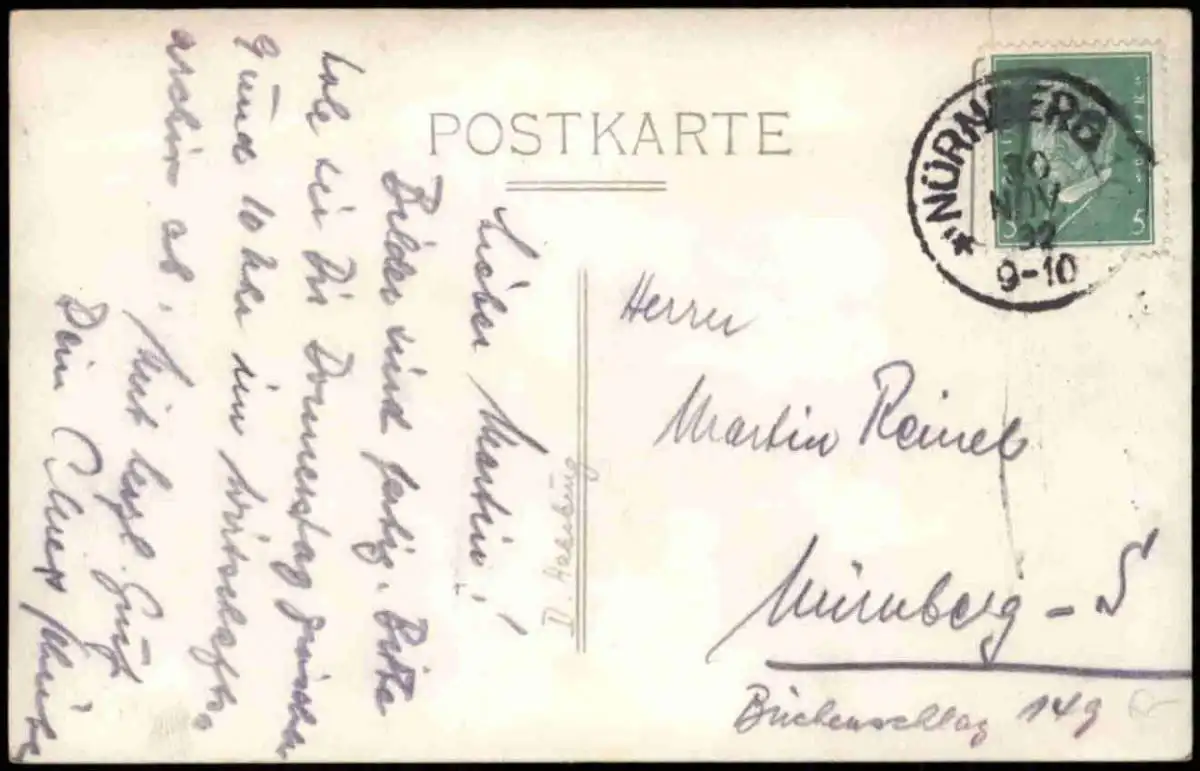 POSTKARTE
NÜRNBERG
30
NOV
32
9-10
5 5
Lieber Martin!
Bilder sind fertig. Bitte
hole sie Dir Donnerstag zwischen
9 und 10 Uhr im Wirtschafts-
archiv ab. Mit herzl. Gruß
Dein
Herrn
Martin Reinel
Nürnberg - S
Buchenschlag 149